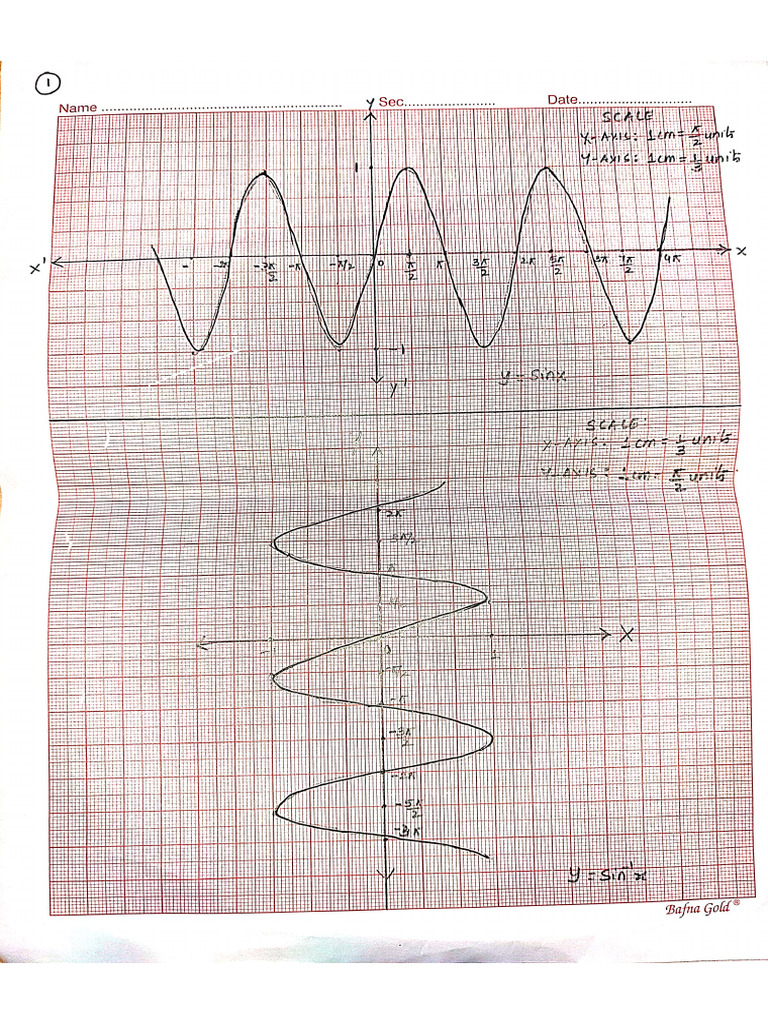 1
Name Sec. Date
y
SCALE
X-AXIS: 1cm = π/2 units
Y-AXIS: 1cm = 1/3 units
1
X' -2π -π -π/2 0 π/2 π 3π/2 2π 5π/2 3π 7π/2 4π X
-1
y'
y = sinx
SCALE:
X-AXIS: 1cm = 1/3 units
Y-AXIS: 1cm = π/2 units
2π
3π/2
π
π/2
-1 0 1 X
-π/2
-π
-3π/2
-2π
-5π/2
-3π
y = sin⁻¹x
Bafna Gold®